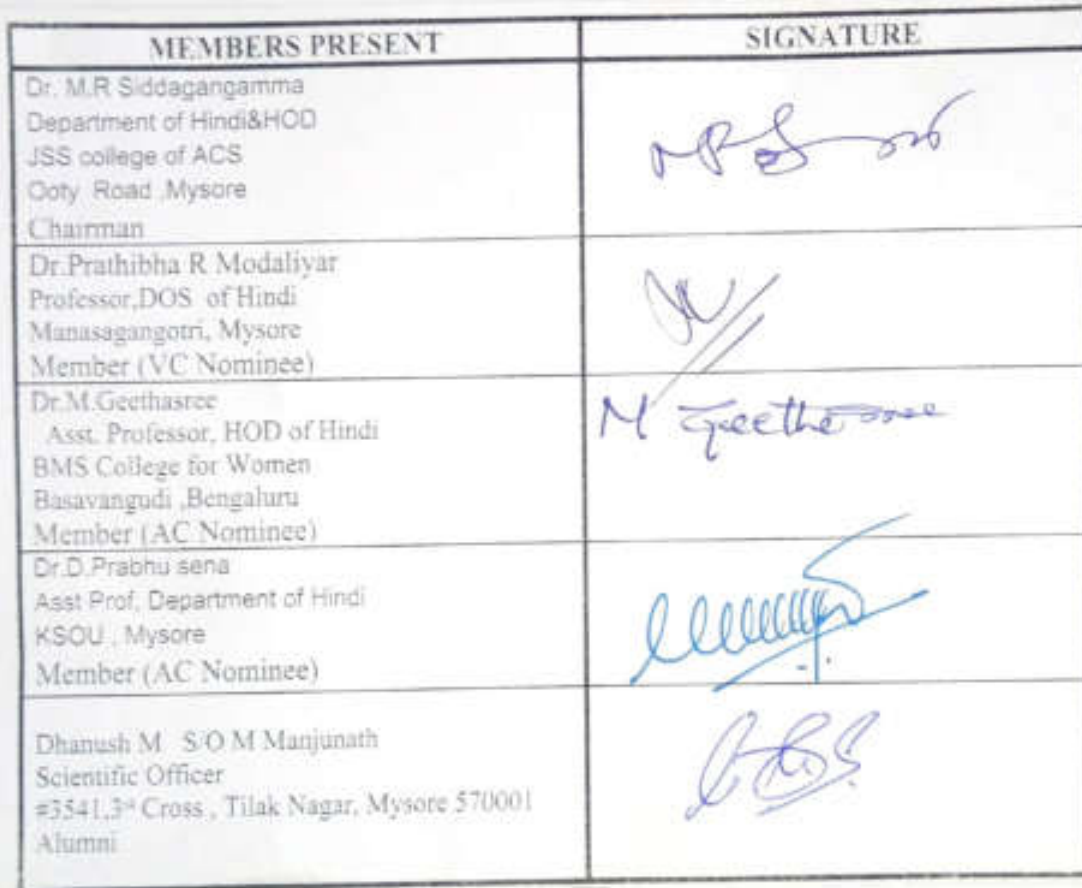 MEMBERS PRESENT
SIGNATURE
Dr. M.R Siddagangamma
Department of Hindi&HOD
JSS college of ACS
Ooty Road ,Mysore
Chairman
Dr.Prathibha R Modaliyar
Professor,DOS of Hindi
Manasagangotri, Mysore
Member (VC Nominee)
Dr.M.Geethasree
Asst. Professor, HOD of Hindi
BMS College for Women
Basavangudi ,Bengaluru
Member (AC Nominee)
M Geethasree
Dr.D.Prabhu sena
Asst Prof, Department of Hindi
KSOU , Mysore
Member (AC Nominee)
Dhanush M S/O M Manjunath
Scientific Officer
#3541,3rd Cross , Tilak Nagar, Mysore 570001
Alumni